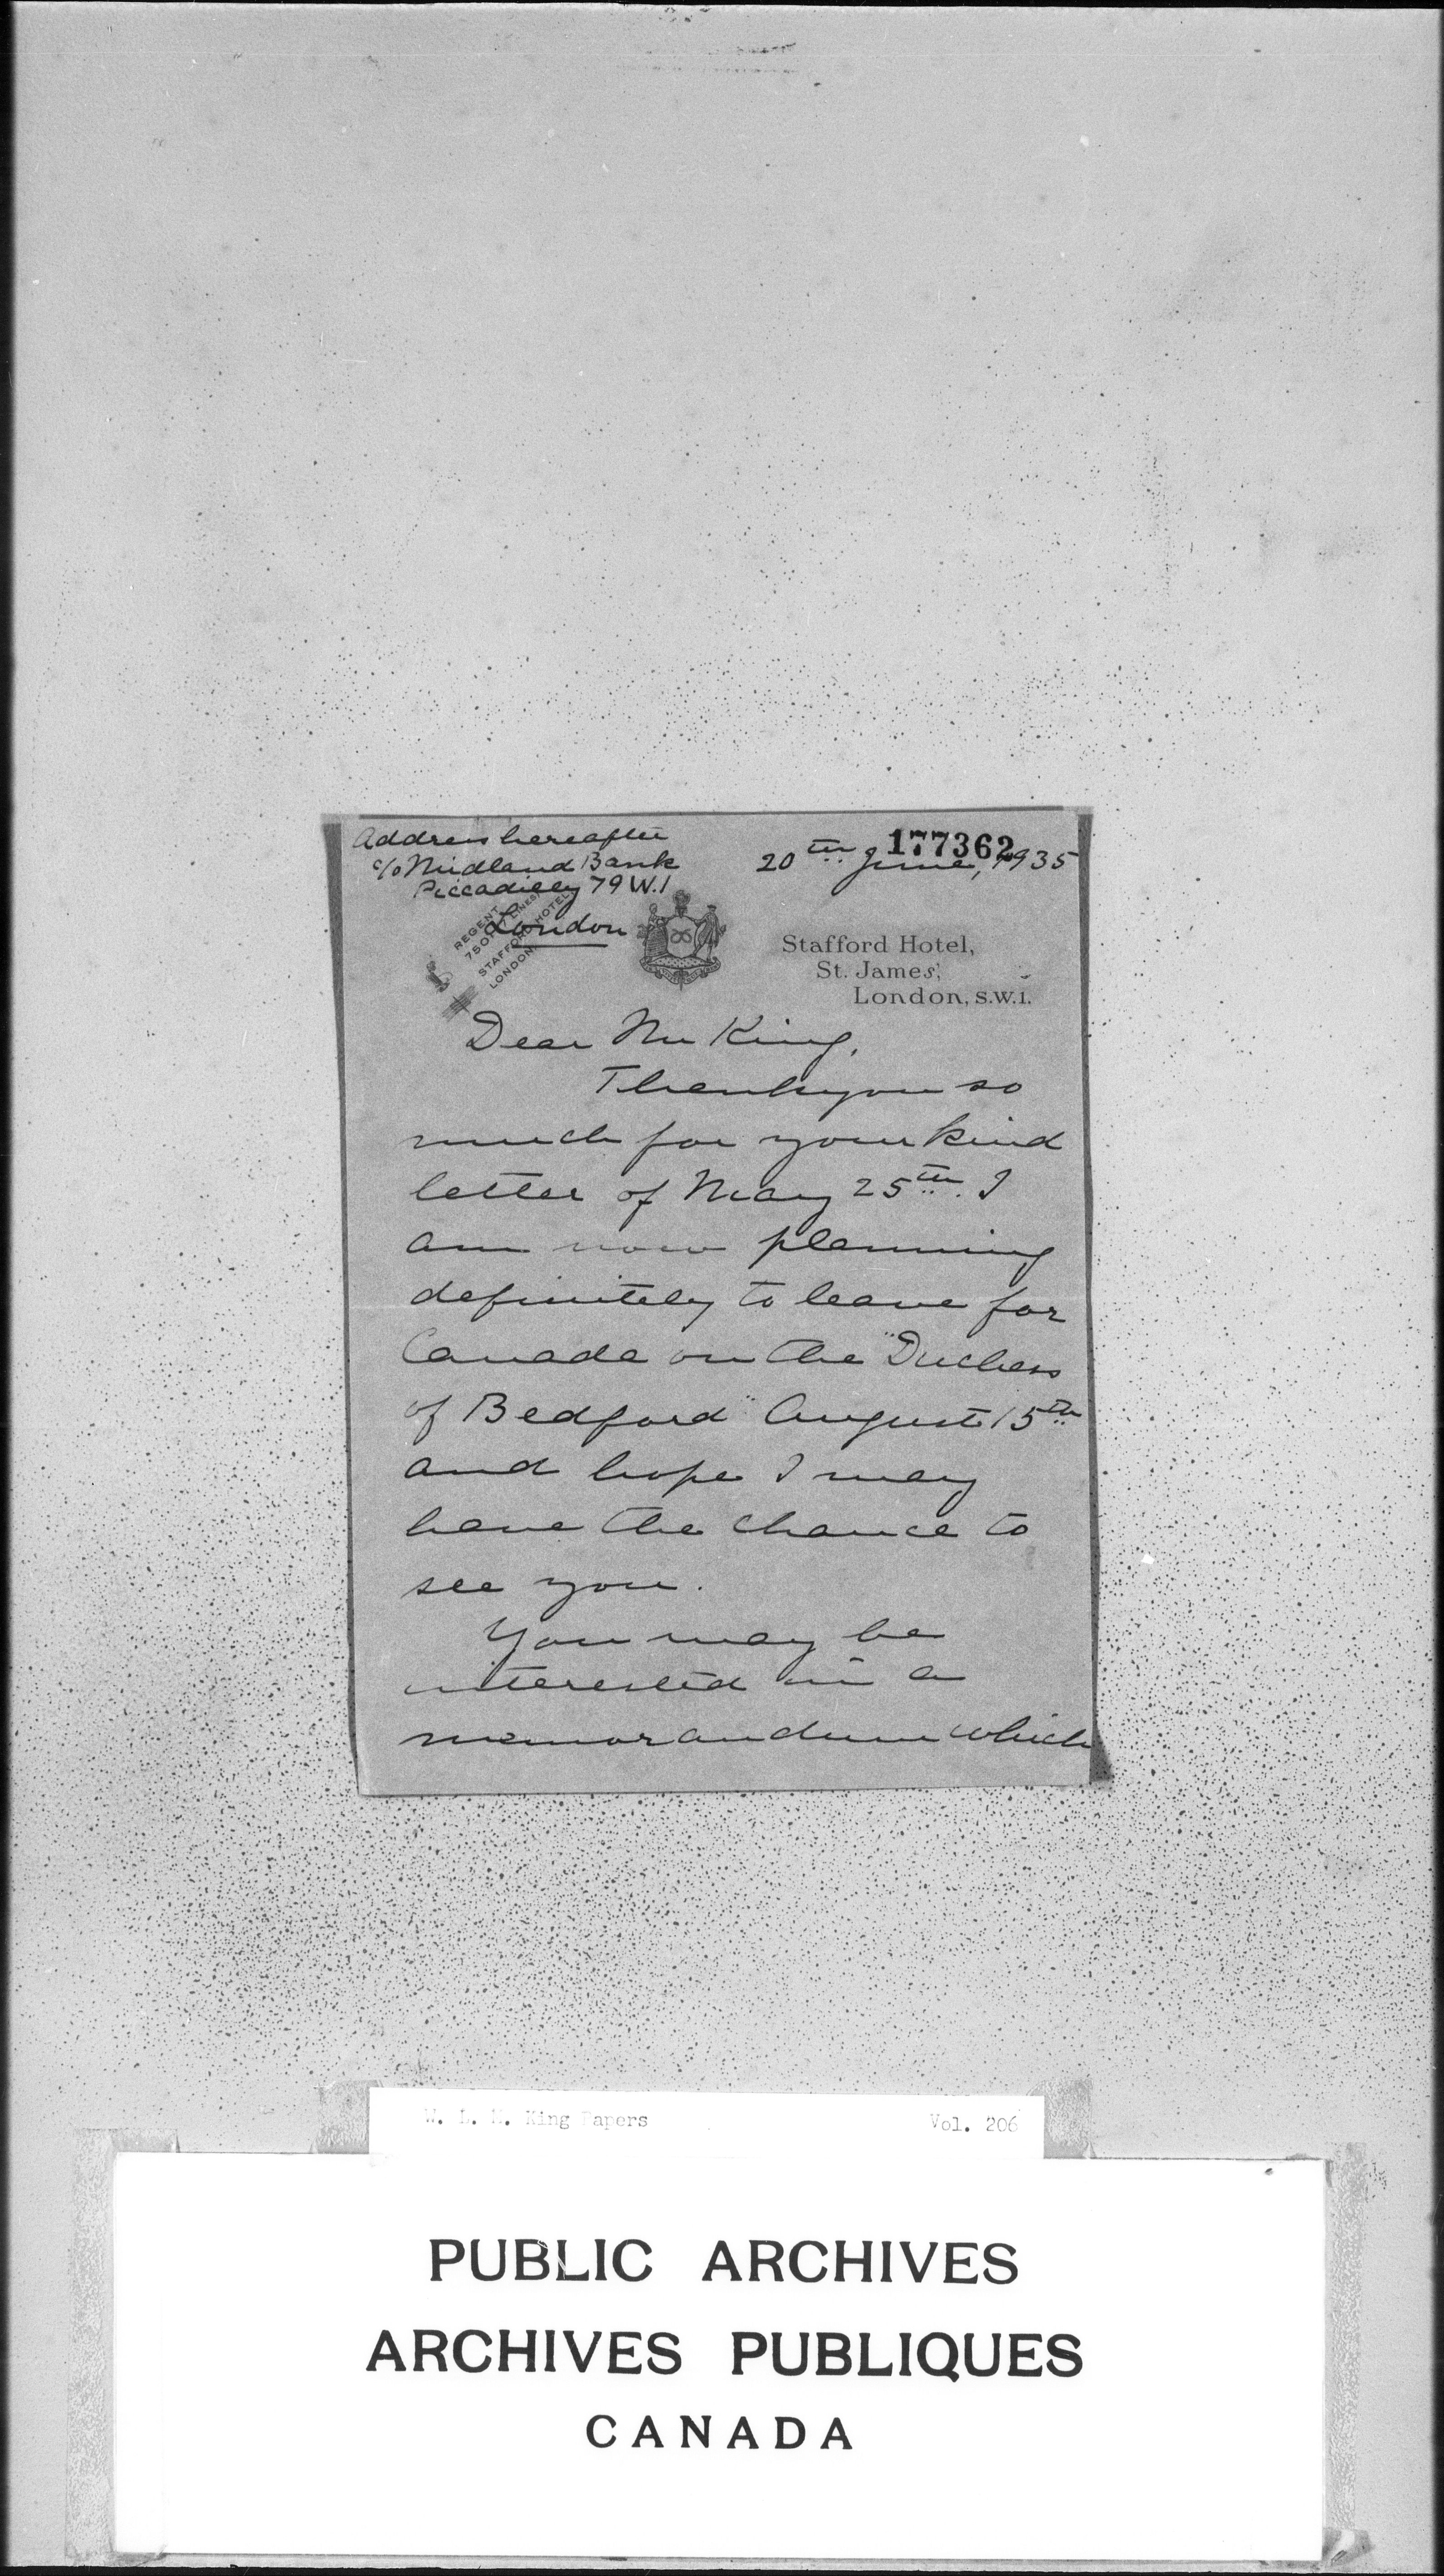 Address hereafter
c/o Midland Bank
Piccadilly 79 W.1
London
177362
20th June, 1935
REGENT
7501 (7 LINES)
STAFFORD HOTEL,
LONDON.
Stafford Hotel,
St. James',
London, S.W.1.
Dear Mr King,
Thank you so
much for your kind
letter of May 25th. I
am now planning
definitely to leave for
Canada on the "Duchess
of Bedford" August 15th
and hope I may
have the chance to
see you.
You may be
interested in a
memorandum which
W. L. M. King Papers
Vol. 206
PUBLIC ARCHIVES
ARCHIVES PUBLIQUES
CANADA